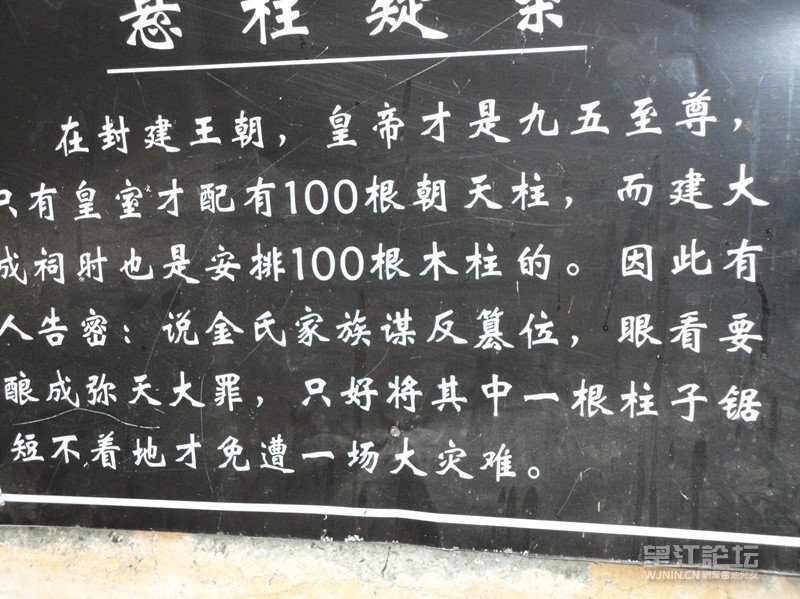 悬柱疑案
在封建王朝，皇帝才是九五至尊，
只有皇室才配有100根朝天柱，而建大
成祠时也是安排100根木柱的。因此有
人告密：说金氏家族谋反篡位，眼看要
酿成弥天大罪，只好将其中一根柱子锯
短不着地才免遭一场大灾难。
望江論坛
WJNIN.CN